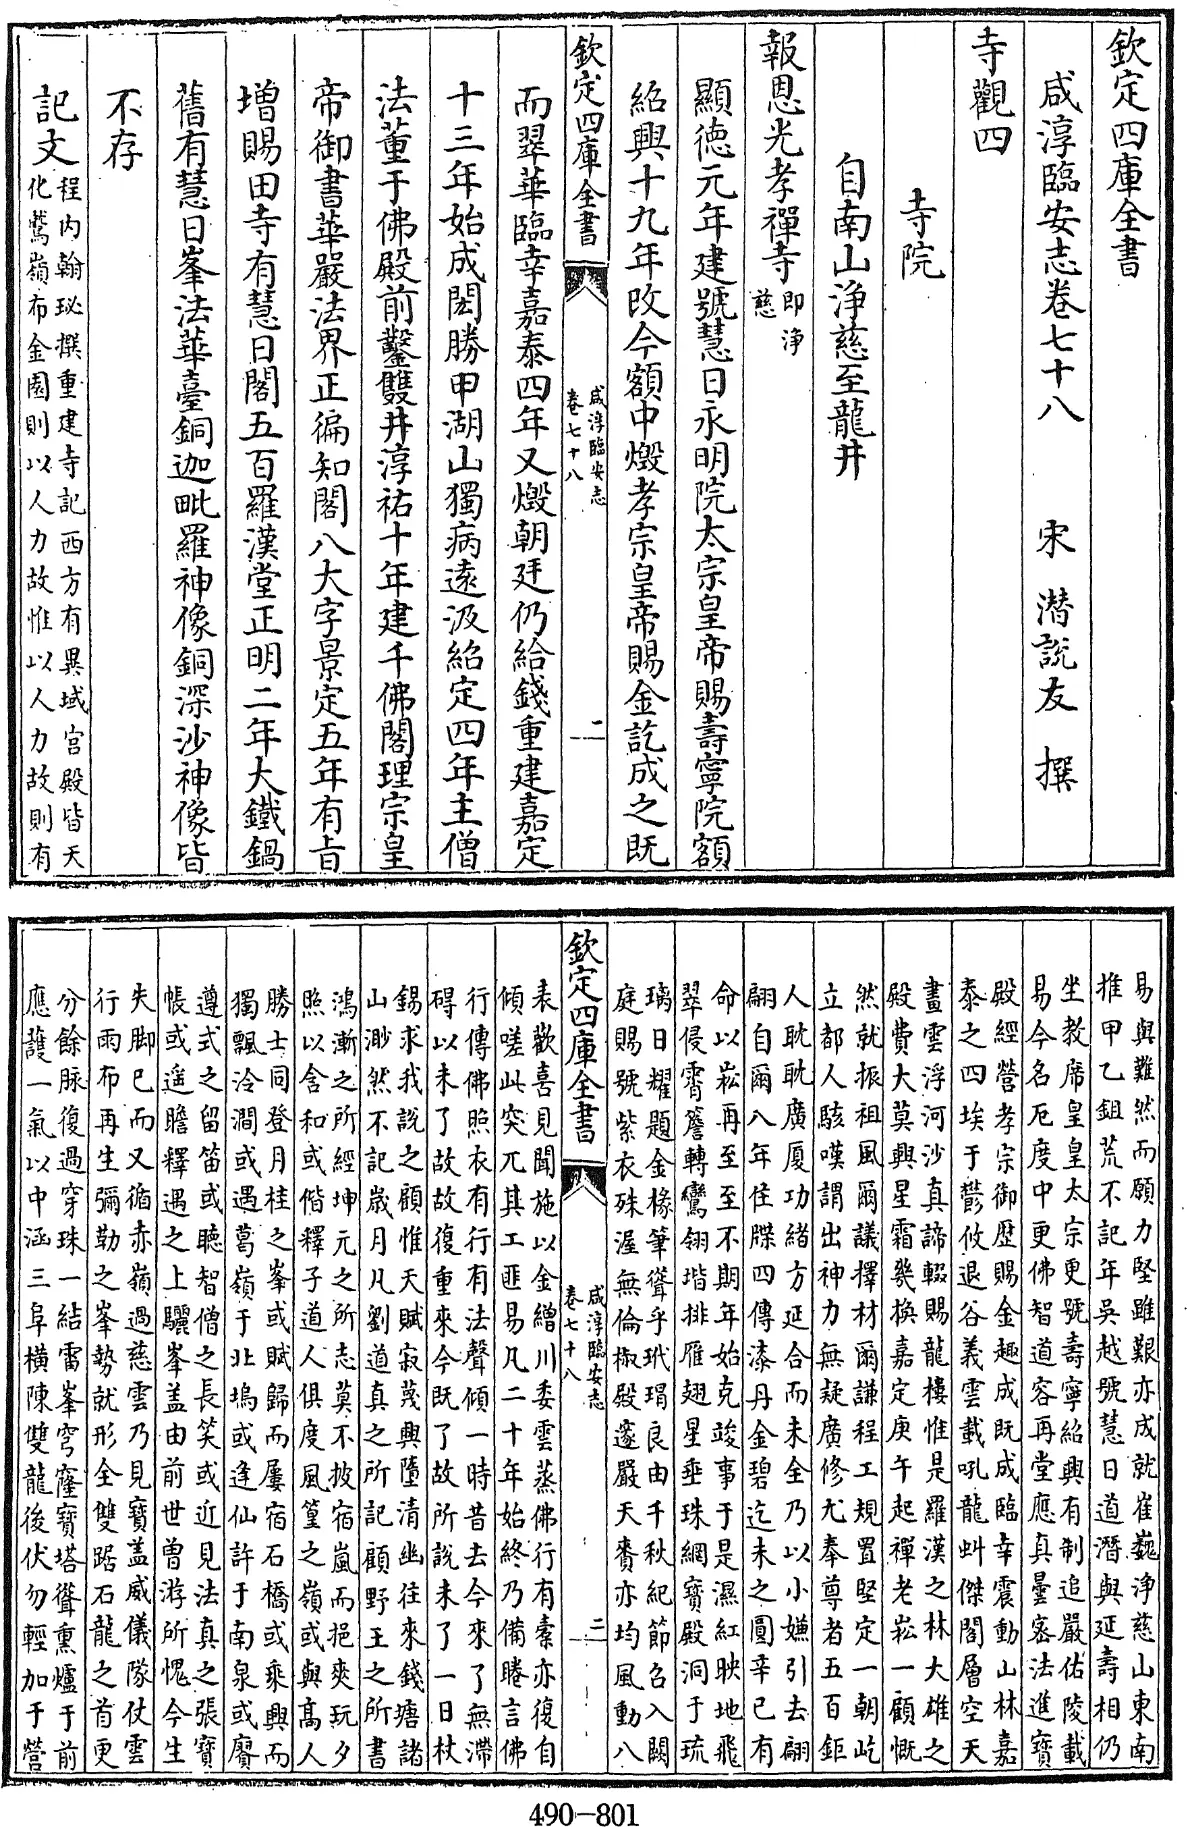 欽定四庫全書
咸淳臨安志卷七十八 宋 潛說友 撰
寺觀四
寺院
自南山淨慈至龍井
報恩光孝禪寺即淨
慈
顯德元年建號慧日永明院太宗皇帝賜壽寧院額
紹興十九年改今額中燬孝宗皇帝賜金訖成之既
欽定四庫全書
咸淳臨安志
卷七十八
二
而翠華臨幸嘉泰四年又燬朝廷仍給錢重建嘉定
十三年始成閎勝甲湖山獨病遠汲紹定四年主僧
法董于佛殿前鑿雙井淳祐十年建千佛閣理宗皇
帝御書華嚴法界正徧知閣八大字景定五年有旨
增賜田寺有慧日閣五百羅漢堂正明二年大鐵鍋
舊有慧日峯法華臺銅迦毗羅神像銅深沙神像皆
不存
記文程内翰珌撰重建寺記西方有異域宫殿皆天
化鷲嶺布金園則以人力故惟以人力故則有
易與難然而願力堅雖艱亦成就崔巍淨慈山東南
推甲乙鉏荒不記年吳越號慧日道潛與延壽相仍
坐教席皇皇太宗更號壽寧紹興有制追嚴佑陵載
易今名厄度中更佛智道容再堂應真曇密法進寶
殿經營孝宗御歴賜金趣成既成臨幸震動山林嘉
泰之四埃于鬱攸退谷義雲載吼龍虯傑閣層空天
晝雲浮河沙真諦輟賜龍樓惟是羅漢之林大雄之
殿費大莫興星霜幾換嘉定庚午起禪老崧一顧慨
然就振祖風爾議擇材爾謙程工規置堅定一朝屹
立都人駭嘆謂出神力無疑廣修尤奉尊者五百鉅
人耽耽廣厦功緒方延合而未全乃以小嫌引去翩
翩自爾八年住牒四傳漆丹金碧迄未之圓辛已有
命以崧再至至不期年始克竣事于是濕紅映地飛
翠侵霄簷轉鸞翎堦排雁翅星垂珠網寶殿洞于琉
璃日耀題金椽筆聳乎玳瑁良由千秋紀節召入闕
庭賜號紫衣殊渥無倫椒殿邃嚴天賚亦均風動八
欽定四庫全書
咸淳臨安志
卷七十八
三
表歡喜見聞施以金繒川委雲蒸佛行有素亦復自
傾嗟此突兀其工匪易凡二十年始終乃備睠言佛
行傳佛照衣有行有法聲傾一時昔去今來了無滯
碍以未了故故復重來今既了故所說未了一日杖
錫求我說之顧惟天賦寂蔑興墮清幽往來錢塘諸
山渺然不記歲月凡劉道真之所記顧野王之所書
鴻漸之所經坤元之所志莫不披宿嵐而挹爽玩夕
照以含和或偕釋子道人俱度風篁之嶺或與髙人
勝士同登月桂之峯或賦歸而屢宿石橋或乘興而
獨飄泠澗或遇葛嶺于北塢或逢仙許于南泉或賡
遵式之留笛或聽智僧之長笑或近見法真之張寶
帳或遥瞻釋遇之上驪峯盖由前世曾游所愧今生
失脚已而又循赤嶺過慈雲乃見寶盖威儀隊仗雲
行雨布再生彌勒之峯勢就形全雙踞石龍之首更
分餘脉復過穿珠一結雷峯穹窿寶塔聳熏爐于前
應護一氣以中涵三阜横陳雙龍後伏勿輕加于營
490-801